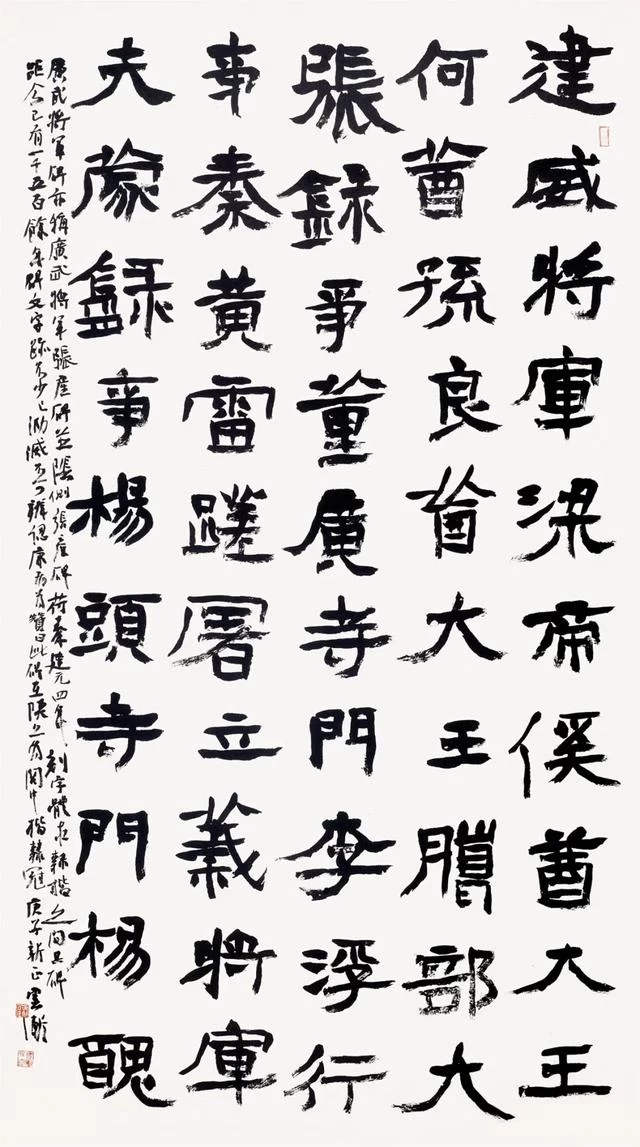 建威將軍梁帝傒酋大王
何酋孫良酋大王腾部大
張錄事董廣寺門李浮行
事秦黄雷蹉屠立義將軍
夫蒙錄事楊頭寺門楊醜
廣武將軍碑亦稱廣武將軍張產碑並陰側張產碑苻秦建元四年刻字體在隸楷之間其碑
距今已有一千五百餘年碑文字跡不少已泐滅不可辨認康有為贊曰此碑在陝亦為關中楷隸冠庚子新正